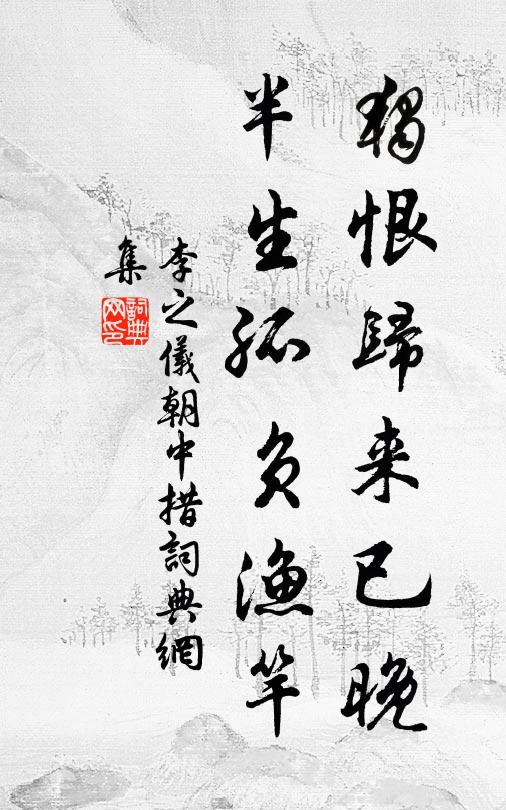 獨恨歸来已晚
半生孤負漁竿
李之儀朝中措詞典網
集
詞典網印